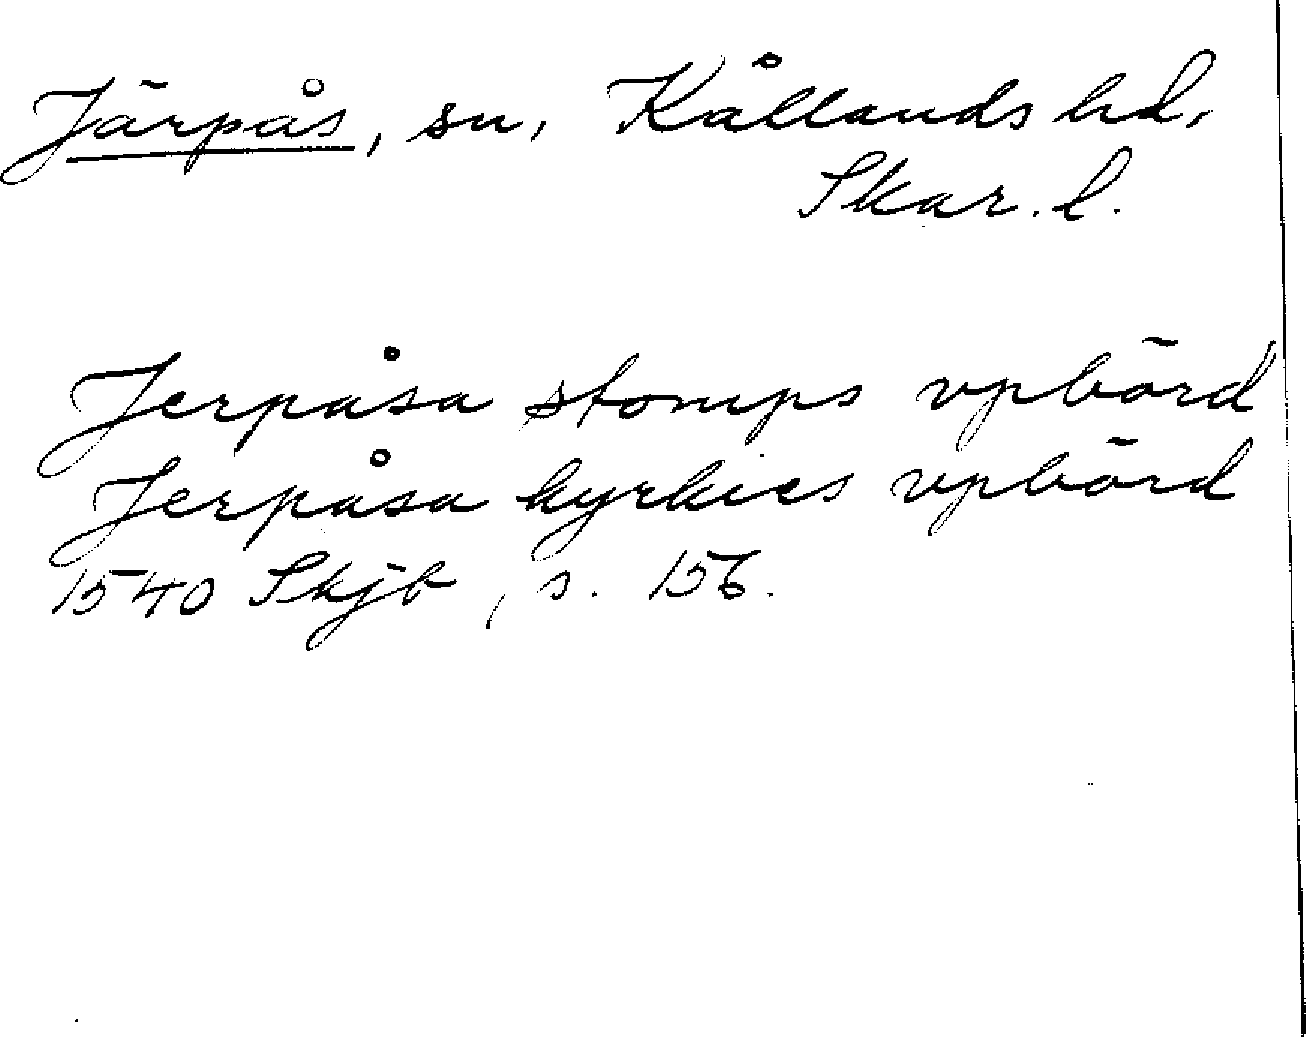 Järpås, sn, Kållands hd,
Skar. l.
Jerpåsa stomps vpbörd
Jerpåsa kyrkies vpbörd
1540 Skjb, s. 156.